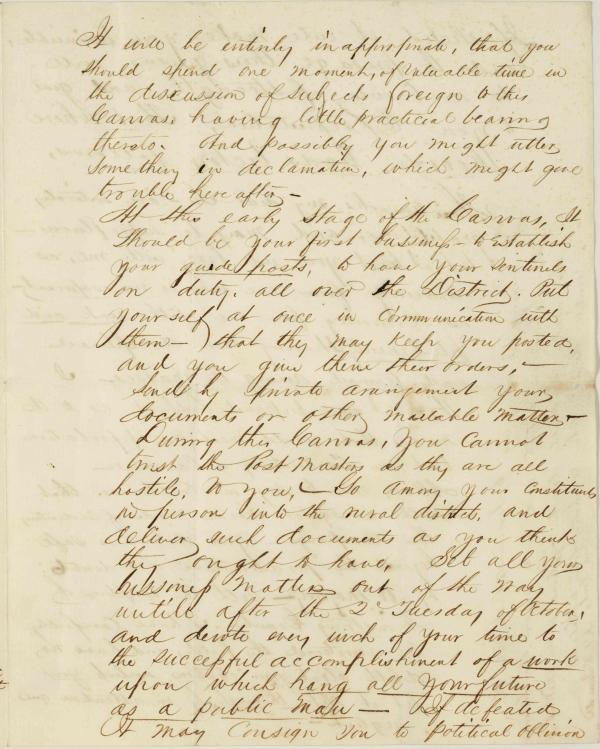 It will be entirely inappropriate, that you
should spend one moment, of valuable time in
the discussion of subjects foreign to this
Canvas, having little practical bearing
thereto. And possibly you might utter
something in declamation, which might give
trouble hereafter —
At this early stage of the Canvas, it
should be your first bussiness — to establish
your guide posts, to have your sentinels
on duty, all over the District. Put
yourself at once in communication with
them — that they may keep you posted,
and you give them their orders, —
Send by private arangement your
documents or other mailable matter —
During this Canvas, you cannot
trust the Post Masters as they are all
hostile, to you, — Go among your constituents
in person into the rural districts, and
deliver such documents as you think
they ought to have. Set all your
bussiness matters out of the way
untill after the 2d Tuesday of October,
and devote every inch of your time to
the successful accomplishment of a work
upon which hang all your future
as a public man — If defeated
it may consign you to political oblivion